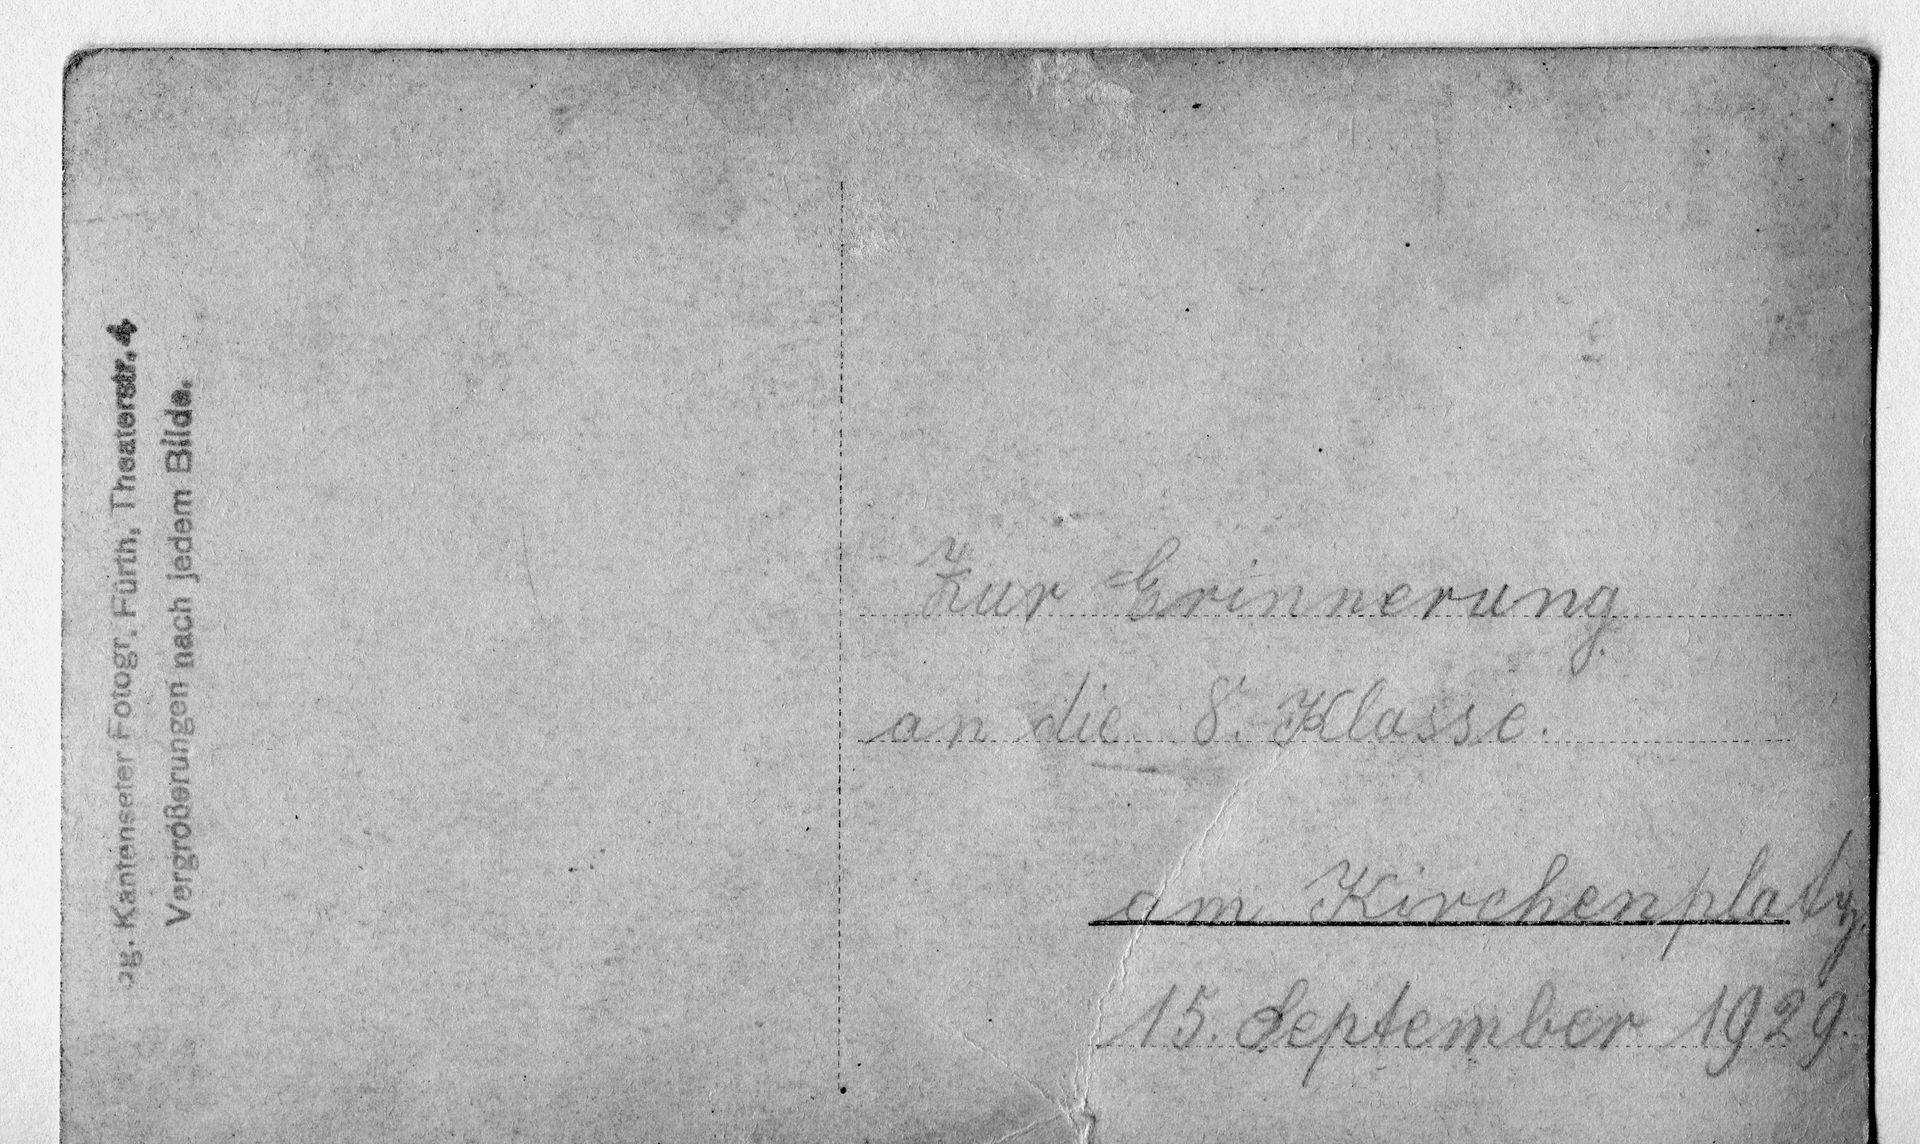 Kantenseter Fotogr. Fürth, Theaterstr. 4
Vergrößerungen nach jedem Bilde.
Zur Erinnerung
an die 8. Klasse.
am Kirchenplatz.
15. September 1929.